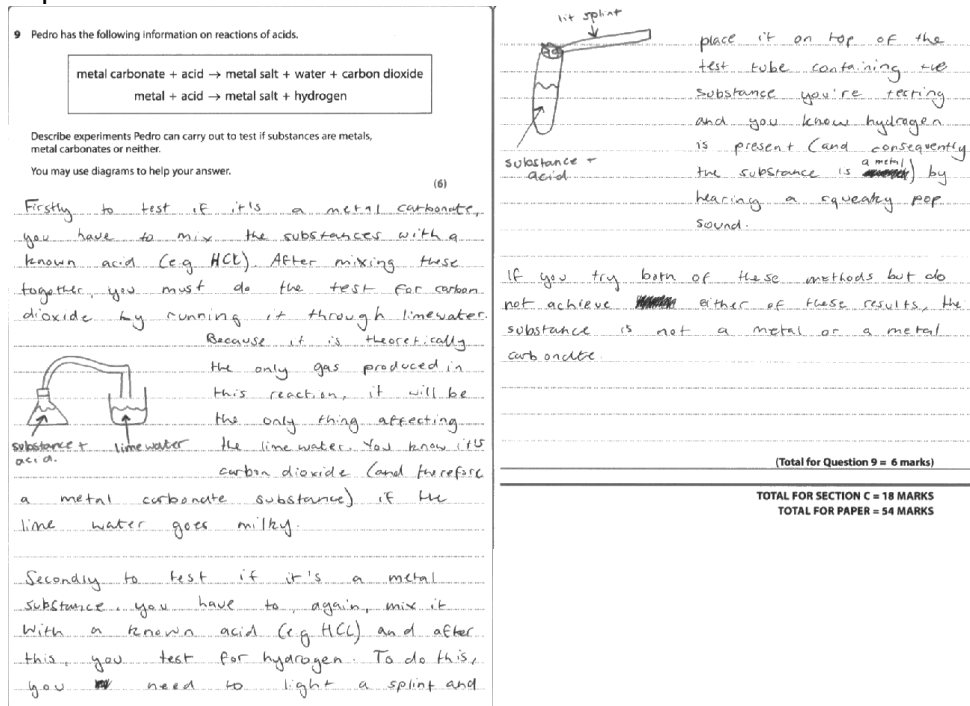 9 Pedro has the following information on reactions of acids.
metal carbonate + acid → metal salt + water + carbon dioxide
metal + acid → metal salt + hydrogen
Describe experiments Pedro can carry out to test if substances are metals,
metal carbonates or neither.
You may use diagrams to help your answer.
(6)
Firstly to test if it's a metal carbonate,
you have to mix the substances with a
known acid (e.g HCl). After mixing these
together, you must do the test for carbon
dioxide by running it through limewater.
Because it is theoretically
the only gas produced in
this reaction, it will be
the only thing affecting
the lime water. You know it's
carbon dioxide (and therefore
a metal carbonate substance) if the
lime water goes milky.
substance +
acid.
limewater
Secondly to test if it's a metal
substance, you have to, again, mix it
with a known acid (e.g HCl) and after
this, you test for hydrogen. To do this,
you need to light a splint and
lit splint
substance +
acid
place it on top of the
test tube containing the
substance you're testing
and you know hydrogen
is present (and consequently
the substance is a metal) by
hearing a squeaky pop
sound.
If you try both of these methods but do
not achieve either of these results, the
substance is not a metal or a metal
carbonate.
(Total for Question 9 = 6 marks)
TOTAL FOR SECTION C = 18 MARKS
TOTAL FOR PAPER = 54 MARKS